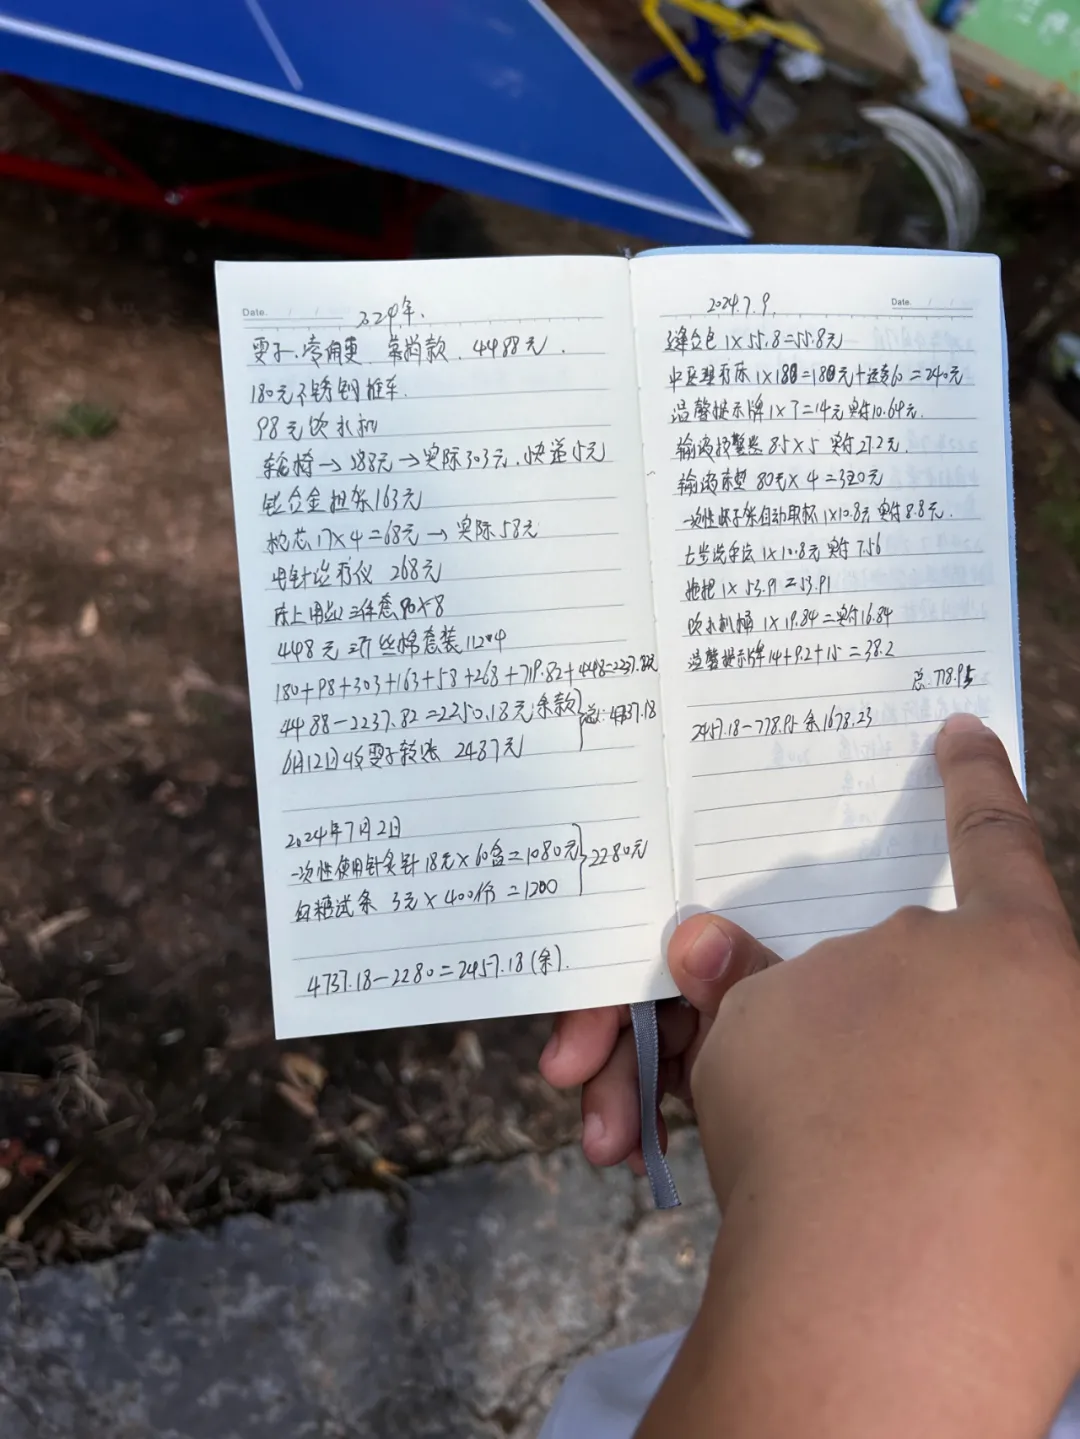 Date.
2024年.
雯子、常用更 第消款. 4488元.
180元不锈钢推车.
98元饮水机
轮椅→288元→实际303元.快递15元
铝合金担架163元
枕芯17×4=68元→实际58元
电针治疗仪 268元
床上用品三件套90×8
448元 三斤丝棉套装112*4
180+98+303+163+58+268+719.82+448=2237.82
4488-2237.82=2250.18元余款
总:4737.18
6月12日收雯子转账 2487元
2024年7月2日
一次性使用针灸针18元×60盒=1080元
2280元
血糖试条 3元×400份=1200
4737.18-2280=2457.18(余).
2024.7.9.
Date.
缝合包1×55.8=55.8元
中医理疗床1×180=180元+运费60=240元
温馨提示牌1×7=14元实付10.64元.
输液报警器 85×5 实付27.2元.
输液床垫 80元×4=320元
一次性杯子架自动取杯1×10.8元 实付8.8元.
七步洗手法1×10.8元实付7.56
拖把1×53.91=53.91
饮水机桶1×19.84=实付16.84
温馨提示牌14+9.2+15=38.2
总:778.95
2457.18-778.95 余1678.23